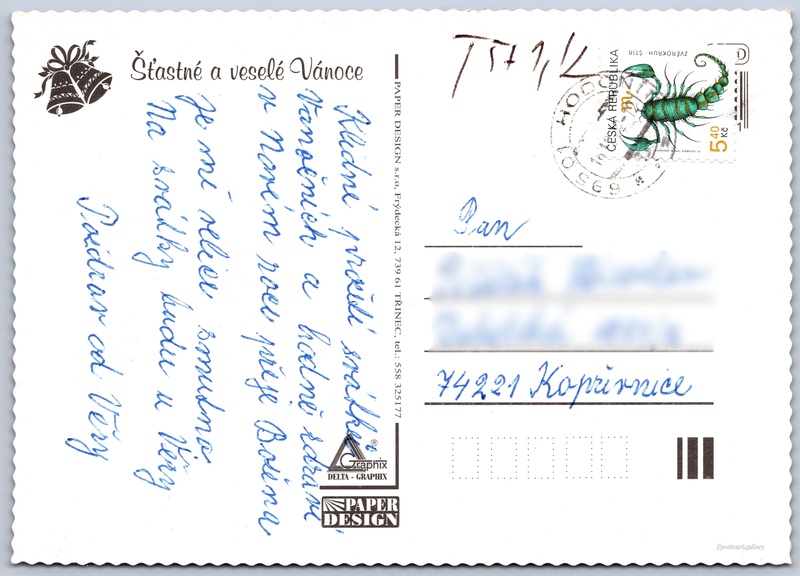 Šťastné a veselé Vánoce
Klidné prožití svátků
Vánočních a hodně zdraví
v Novém roce přeje Bosina
je mě velice smutno
Na svátky budu u Věry
Pozdrav od Věry
PAPER DESIGN s.r.o, Frýdecká 12, 739 61 TŘINEC, tel.: 558 325177
Graphix
®
DELTA - GRAPHIX
PAPER
DESIGN
ČESKÁ REPUBLIKA
ZVĚROKRUH - ŠTÍR
5,40
Kč
695 01 HODONÍN
Pan
74221 Kopřivnice
//postcard.gallery